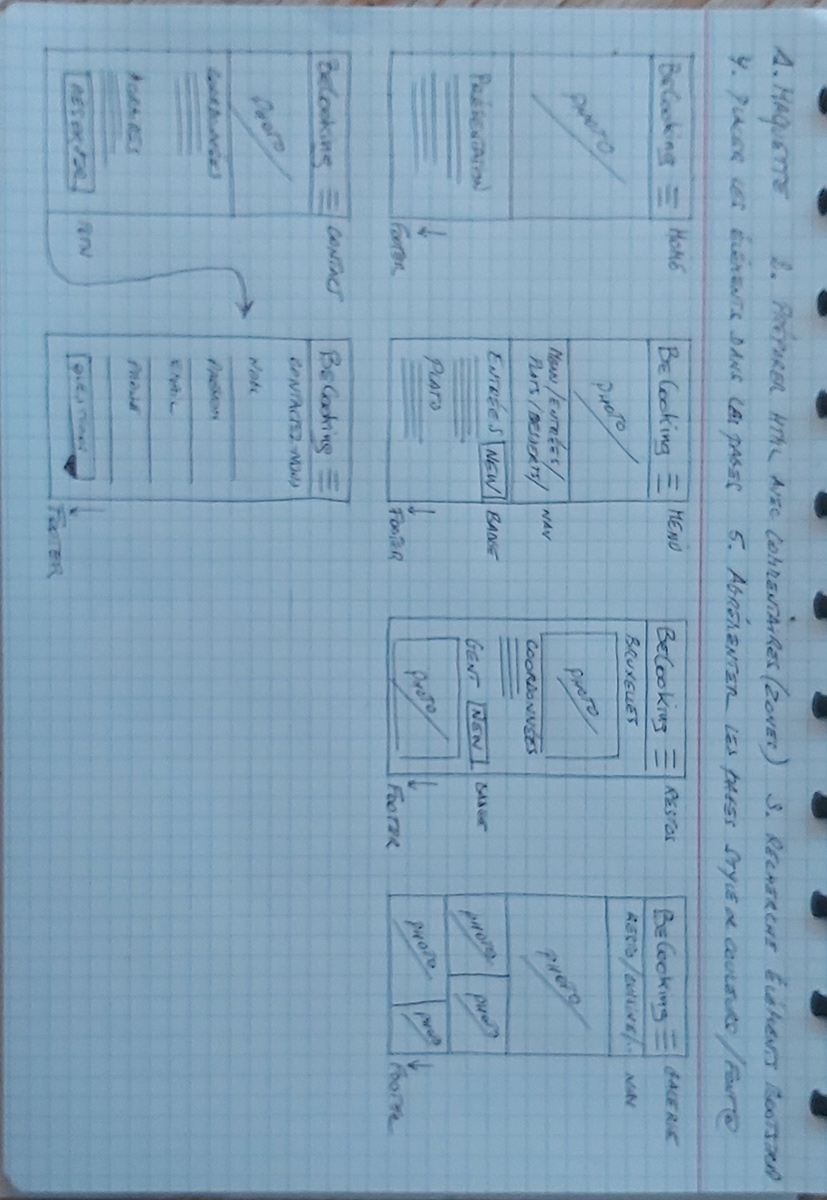 1. MAQUETTE 2. PRÉPARER HTML AVEC COMMENTAIRES (ZONES) 3. RECHERCHE ÉLÉMENTS BOOTSTRAP
4. PLACER LES ÉLÉMENTS DANS LES PAGES 5. AGRÉMENTER LES PAGES STYLE DE COULEURS / FONT
BeCooking HOME
PHOTO
PRÉSENTATION
FOOTER
BeCooking MENU
PHOTO
MENU / ENTRÉES / NAV
PLATS / DESSERTS /
ENTRÉES NEW BADGE
PLATS
FOOTER
BeCooking RESTOS
BRUXELLES
PHOTO
COORDONNÉES
GENT NEW BADGE
PHOTO
FOOTER
BeCooking GALERIE
RESTO / CUISINE /.. NAV
PHOTO
PHOTO PHOTO
PHOTO PHOTO
FOOTER
BeCooking CONTACT
PHOTO
COORDONNÉES
HORAIRES
RÉSERVER BTN
BeCooking
CONTACTEZ-NOUS
NOM
PRÉNOM
EMAIL
PHONE
QUESTIONS
FOOTER